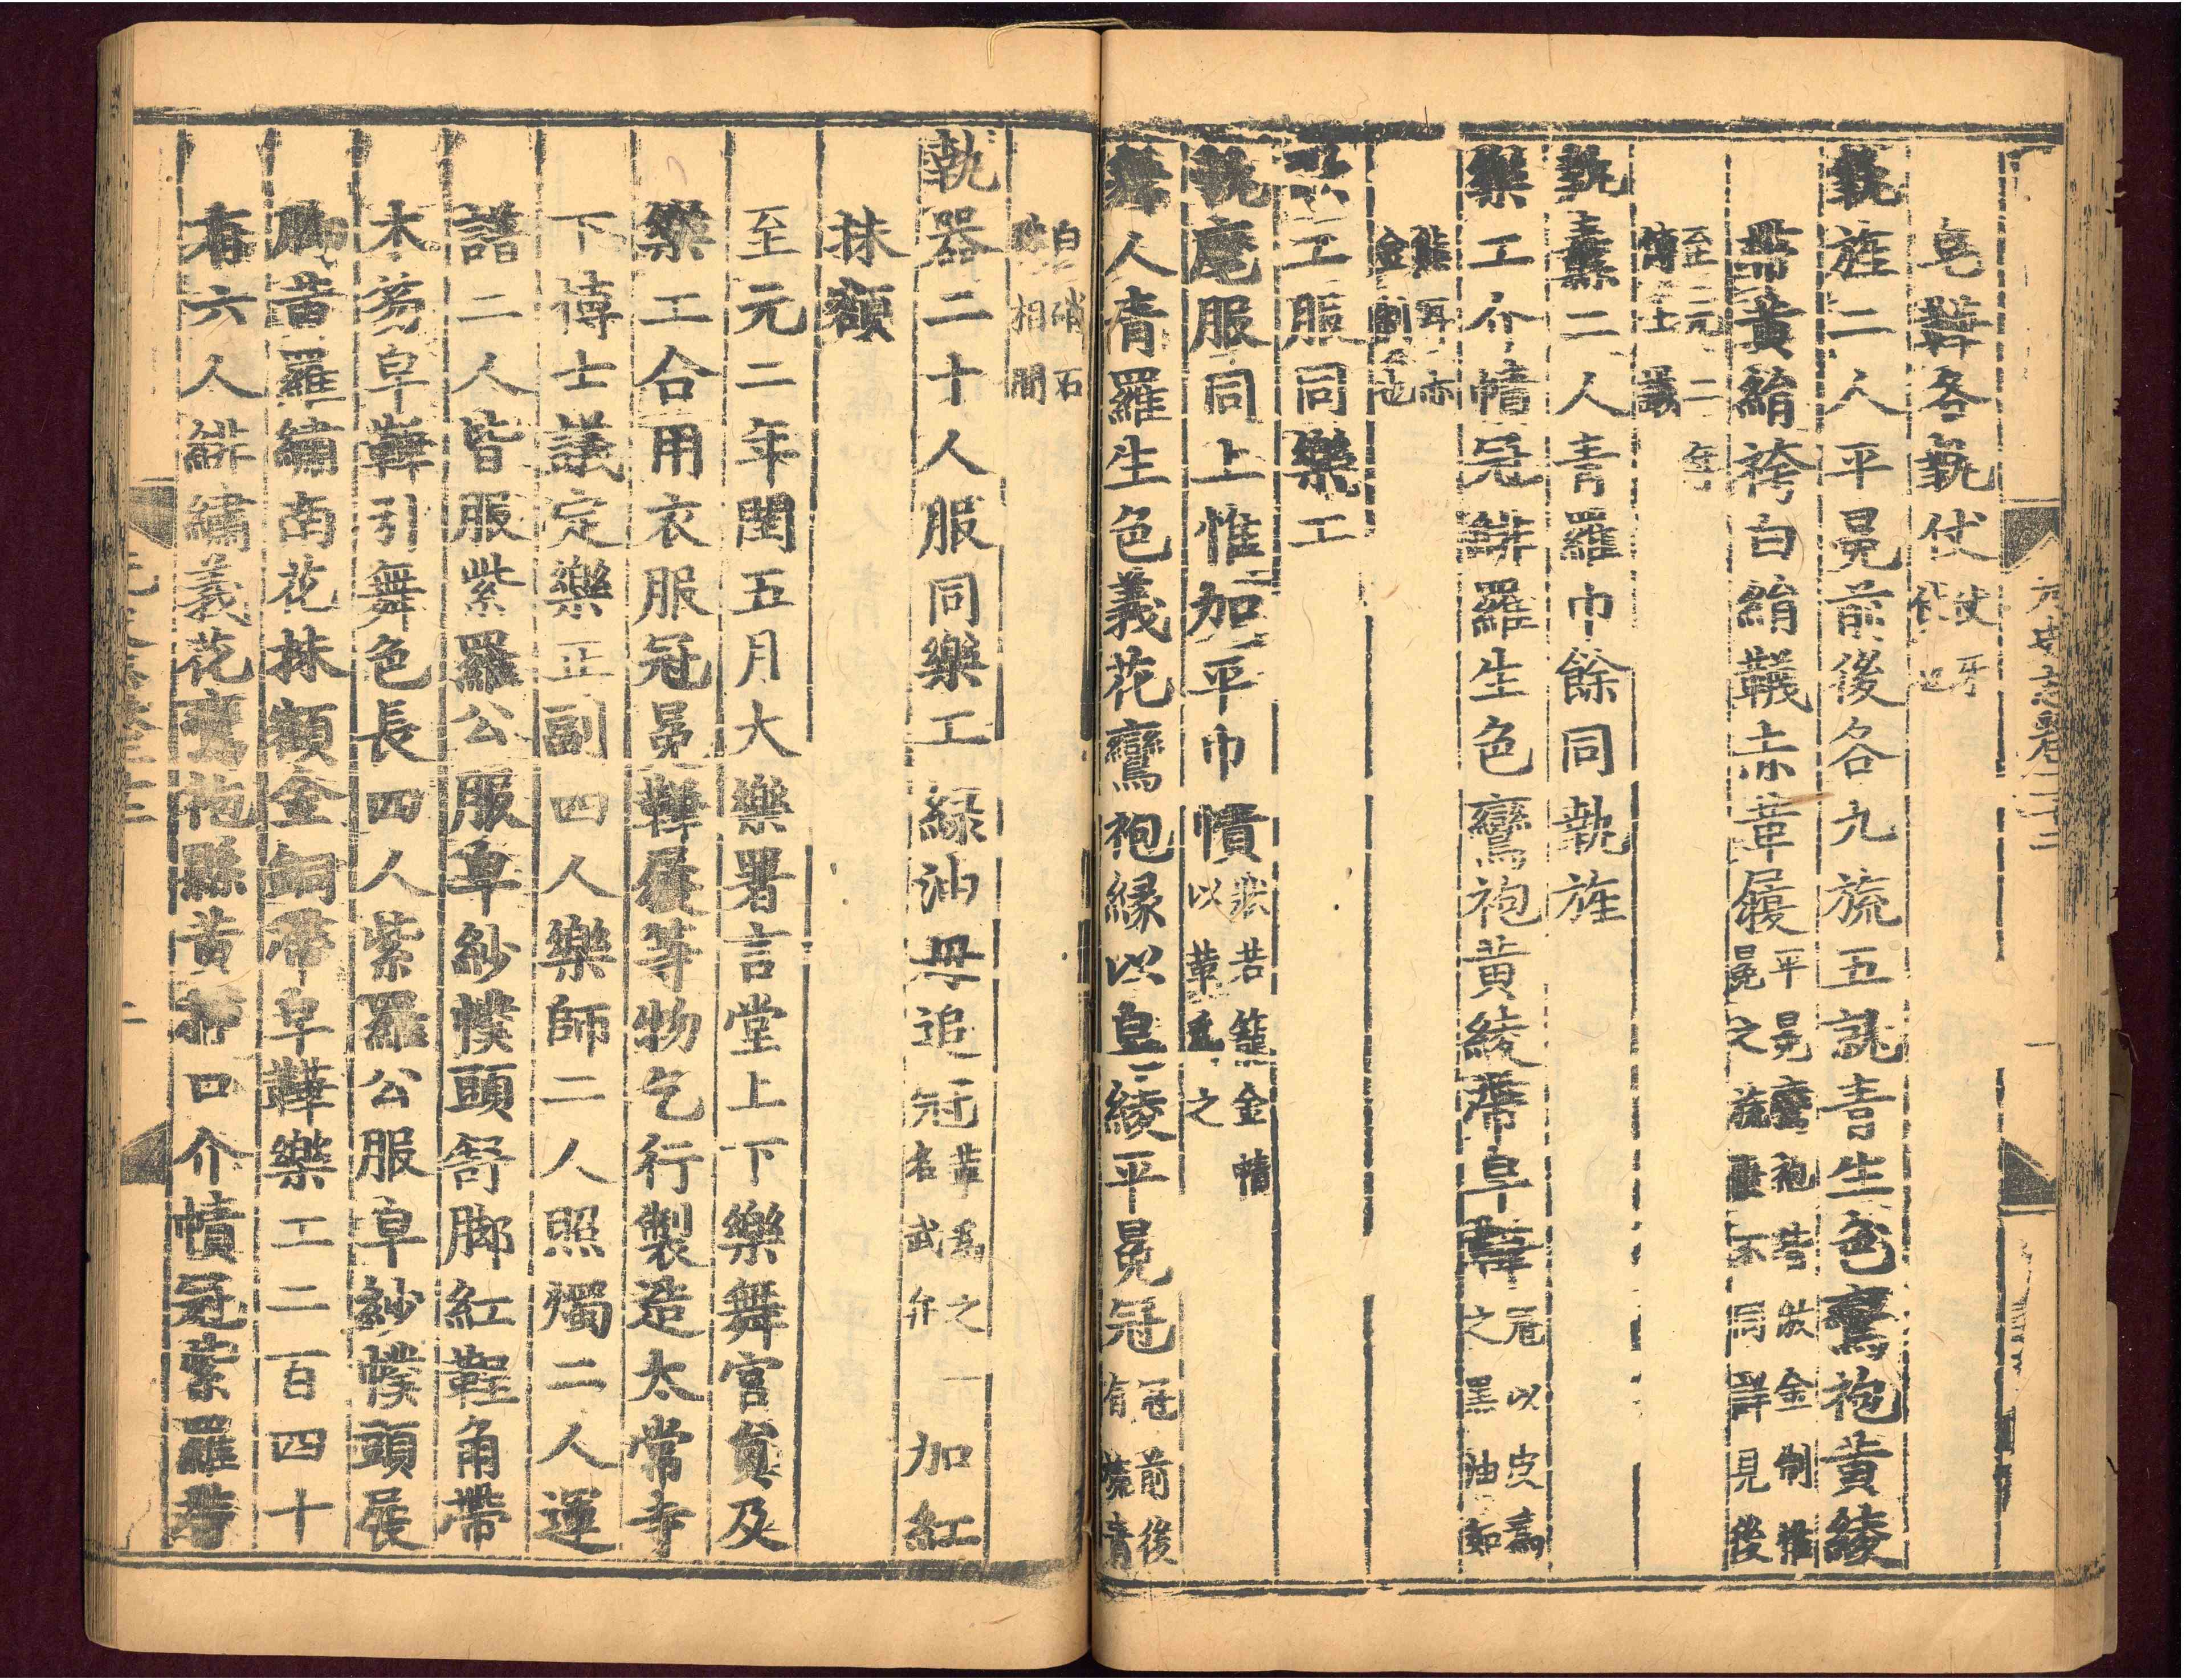 元史志卷二十二 一
皂鞾各執仗仗牙
仗也
執旌二人平冕前後各九旒五就青生色鸞袍黃綾
帶黃絹袴白絹韈赤革履平冕鸞袍皆倣金制惟
冕之旒垂不同詳見後
至元二年
博士議
執纛二人青羅巾餘同執旌
樂工介幘冠緋羅生色鸞袍黃綾帶皂鞾冠以皮爲
之黑油如
熊耳亦
金制也
工服同樂工
執麾服同上惟加平巾幘狀若籠金幘
以革爲之
舞人青羅生色義花鸞袍緣以皂綾平冕冠冠前後
有旒青
白硝石
珠相間
執器二十人服同樂工綠油毋追冠革爲之一
名武弁
加紅
抹額
至元二年閏五月大樂署言堂上下樂舞官員及
樂工合用衣服冠冕鞾履等物乞行製造太常寺
下博士議定樂正副四人樂師二人照燭二人運
譜二人皆服紫羅公服皁紗幞頭舒脚紅鞓角帶
木笏皁鞾引舞色長四人紫羅公服皁紗幞頭展
脚黃羅繡南花抹額金銅帶皁鞾樂工二百四十
有六人緋繡義花鸞袍縣黃插口介幘冠紫羅帶
二